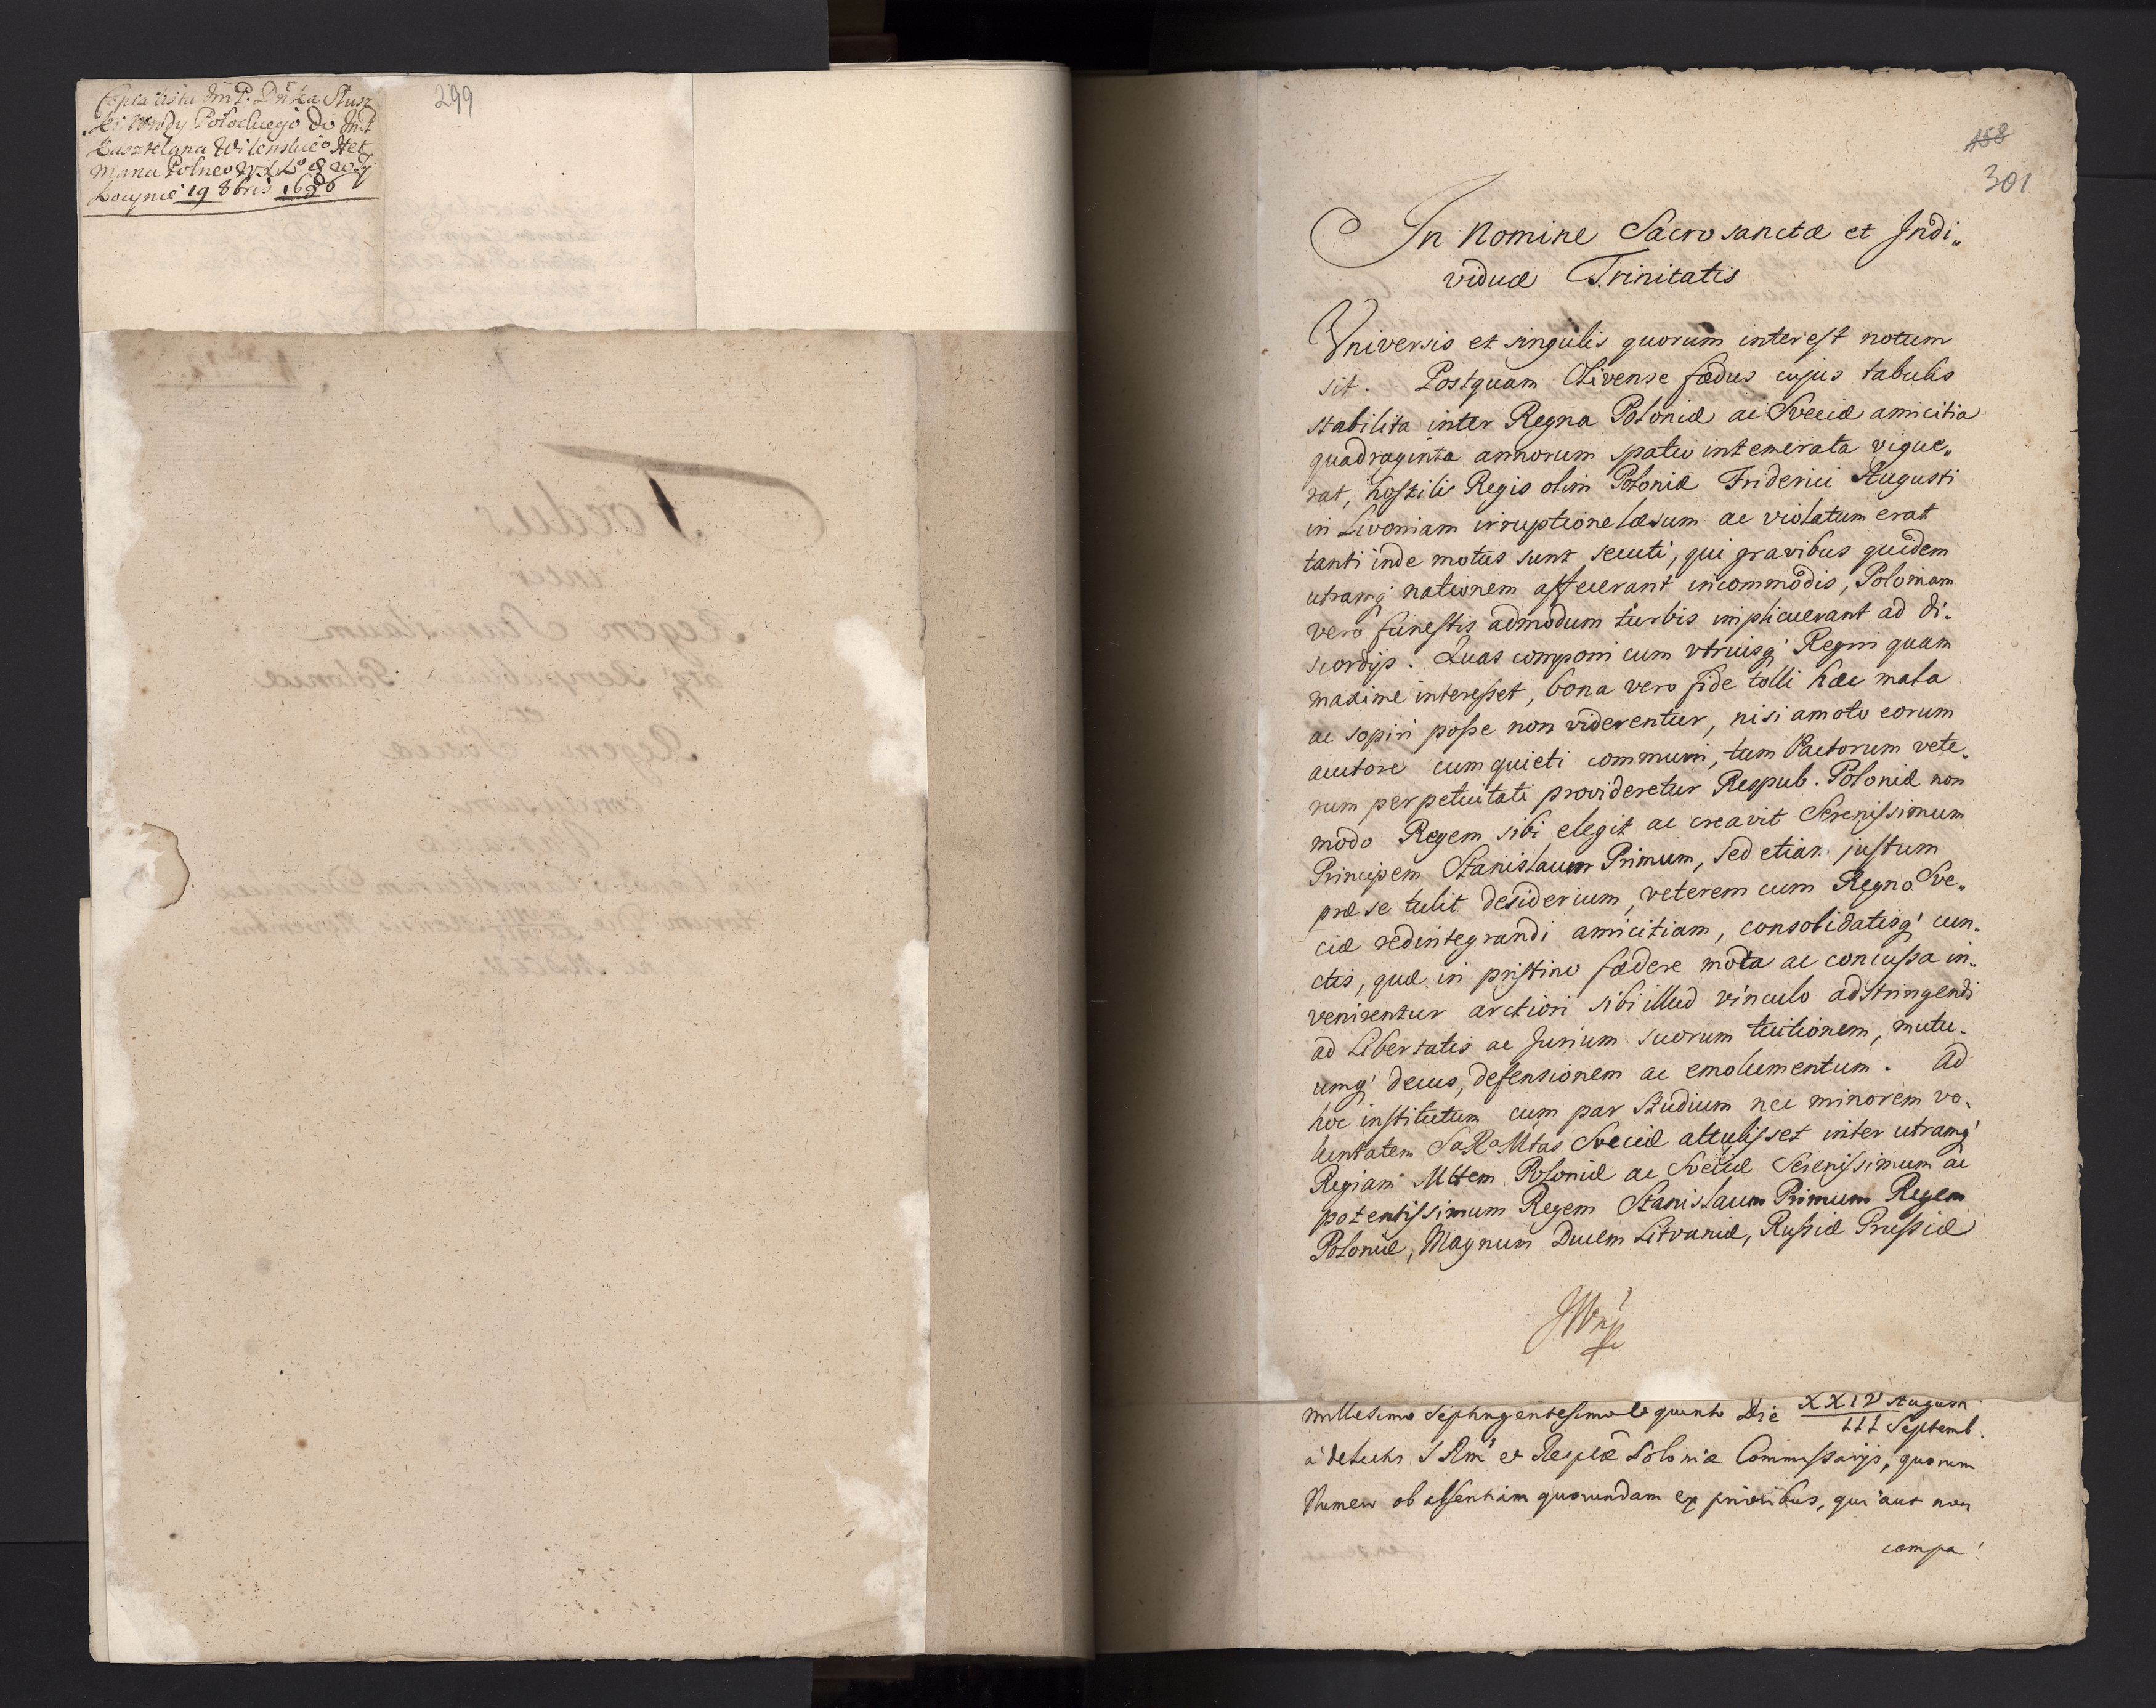 Copia listu JmP. Dńika Słusz
ki Wwdy Połockiego do JmP
Kasztelana Wilenskieo Het
mana Polneo WXLo z woy
19 8bris 1686
299
158
301
In Nomine Sacrosanctæ et Indi„
viduæ Trinitatis
Vniversis et singulis quorum interest notum
sit. Postquam Olivense fœdus cujus tabulis
stabilita inter Regna Poloniæ ac Sveciæ amicitia
quadraginta annorum spatio intemerata vigue„
rat, hostili Regis olim Poloniæ Friderici Augusti
in Livoniam irruptione læsum ac violatum erat
tanti inde motus sunt secuti, qui gravibus quidem
utramq́ nationem affecerant incommodis, Poloniam
vero funestis admodum turbis implicuerant ad di„
scordijs. Quas componi cum vtriusq́ Regni quam
maxime interesset, bona vero fide tolli hæc mala
ac sopiri posse non viderentur, nisi amoto eorum
auctore cum quieti communi, tum Pactorum vete„
rum perpetuitati provideretur Respub. Poloniæ non
modo Regem sibi elegit ac creavit Serenissimum
Principem Stanislaum Primum, sed etiam justum
præ se tulit desiderium, veterem cum Regno Sve„
ciæ redintegrandi amicitiam, consolidatisq́ cun„
ctis, quæ in pristino fœdere mota ac concussa in„
venirentur arctiori sibi illud vinculo adstringendi
ad Libertatis ac Jurium suorum tuitionem, mutu„
umq́ decus, defensionem ac emolumentum. Ad
hoc institutum cum par studium nec minorem vo„
luntatem SaRaMtas Sveciæ attulisset inter utramq́
Regiam Mttem Poloniæ ac Sveciæ Serenissimum ac
potentissimum Regem Stanislaum Primum Regem
Poloniæ, Magnum Ducem Litvaniæ, Russiæ Prussiæ
millesimo septingentesimo quinto Die XXIV Augusti
III Septemb.
a delectis SRm et Reiplæ Poloniæ Commissarijs, quorum
Numero ob absentiam quorundam ex prioribus, qui aut non
compa